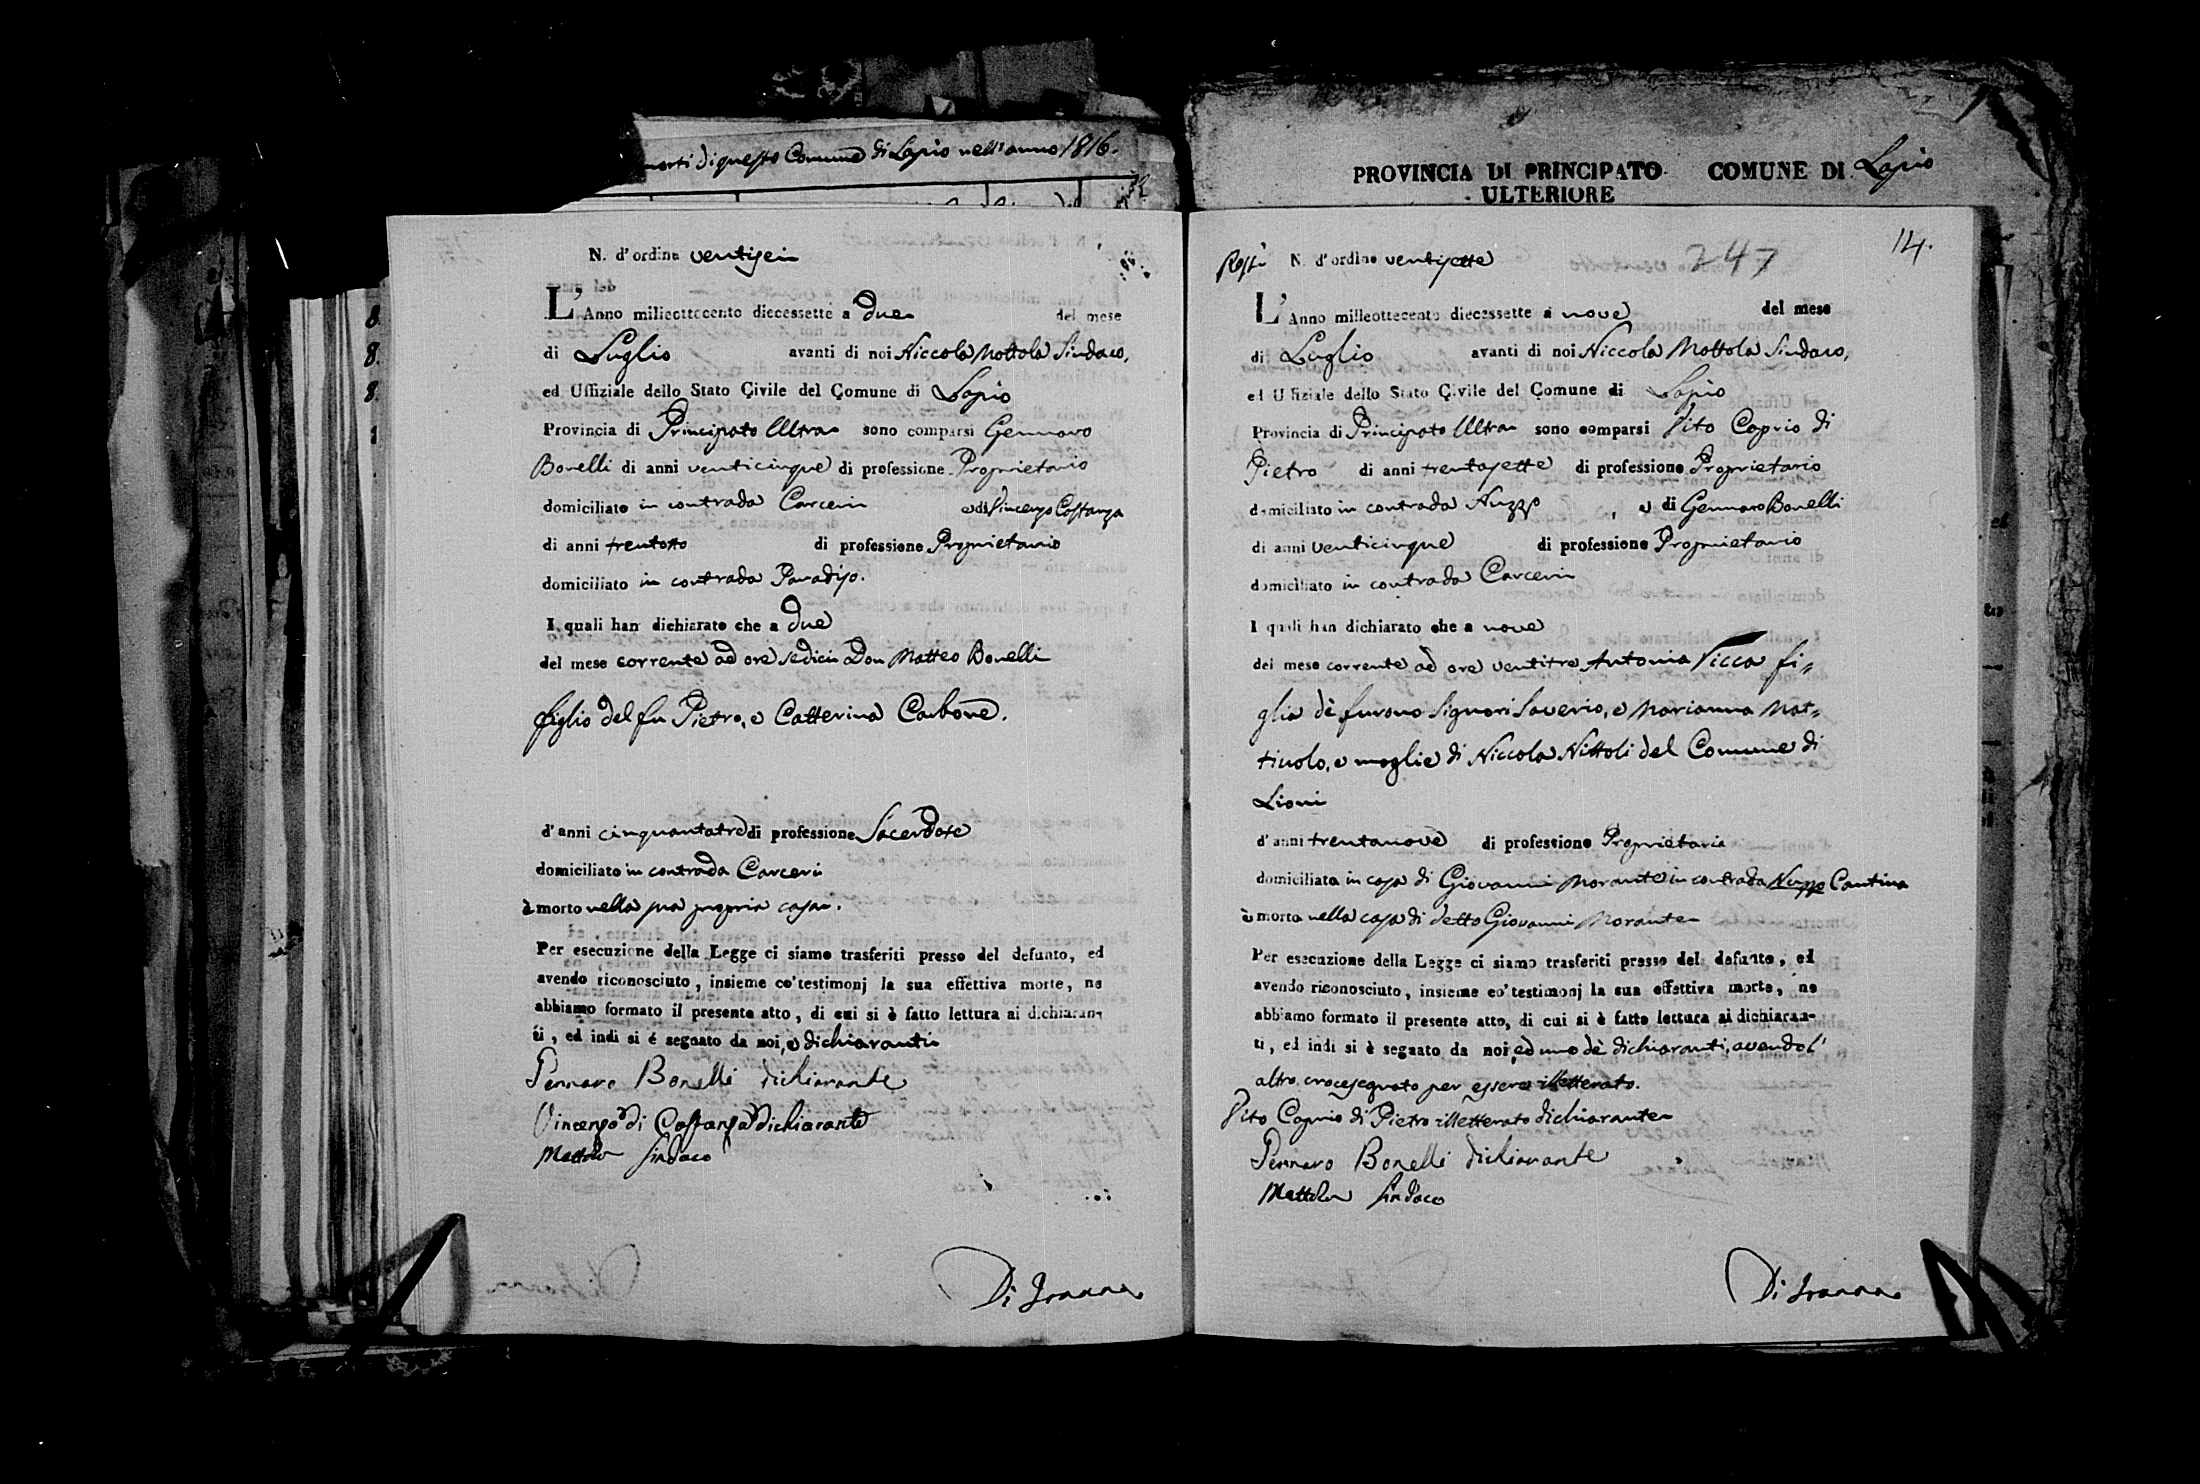 morti di questo Comune di Lapio nell'anno 1816.
PROVINCIA DI PRINCIPATO COMUNE DI Lapio
ULTERIORE
8.
8.
8.
N. d'ordine ventisei
L'Anno milleottocento diecessette a due del mese
di Luglio avanti di noi Niccola Mottola Sindaco,
ed Uffiziale dello Stato Civile del Comune di Lapio
Provincia di Principato Ultra sono comparsi Gennaro
Bonelli di anni venticinque di professione Proprietario
domiciliato in contrada Carceri e di Vincenzo Costanza
di anni trentotto di professione Proprietario
domiciliato in contrada Paradiso.
I quali han dichiarato che a due
del mese corrente ad ore sedici Don Matteo Bonelli
figlio del fu Pietro, e Catterina Carbone.
d'anni cinquantatre di professione Sacerdote
domiciliato in contrada Carceri
è morto nella sua propria casa.
Per esecuzione della Legge ci siamo trasferiti presso del defunto, ed
avendo riconosciuto, insieme co' testimonj la sua effettiva morte, ne
abbiamo formato il presente atto, di cui si è fatto lettura ai dichiaran-
ti, ed indi si é segnato da noi, e dichiaranti
Gennaro Bonelli dichiarante
Vincenzo di Costanza dichiarante
Mottola Sindaco
Di Ioanna
14.
247
N. d'ordine ventisette
L'Anno milleottocento diecessette a nove del mese
di Luglio avanti di noi Niccola Mottola Sindaco,
ed Uffiziale dello Stato Civile del Comune di Lapio
Provincia di Principato Ultra sono comparsi Vito Caprio di
Pietro di anni trentasette di professione Proprietario
domiciliato in contrada Nuzzo, e di Gennaro Bonelli
di anni venticinque di professione Proprietario
domiciliato in contrada Carceri
I quali han dichiarato che a nove
del mese corrente ad ore ventitre Antonia Sicca fi-
glia dè furono Signori Saverio, e Marianna Mat-
tivolo, e moglie di Niccola Nittoli del Comune di
Lioni
d'anni trentanove di professione Proprietaria
domiciliata in casa di Giovanni Morante in contrada Nuzzo Cantina
è morta nella casa di detto Giovanni Morante
Per esecuzione della Legge ci siamo trasferiti presso del defunto, ed
avendo riconosciuto, insieme co' testimonj la sua effettiva morte, ne
abbiamo formato il presente atto, di cui si è fatto lettura ai dichiaran-
ti, ed indi si è segnato da noi, ed uno dè dichiaranti, avendo l'
altro crocesegnato per essere illetterato.
Vito Caprio di Pietro illetterato dichiarante
Gennaro Bonelli dichiarante
Mottola Sindaco
Di Ioanna